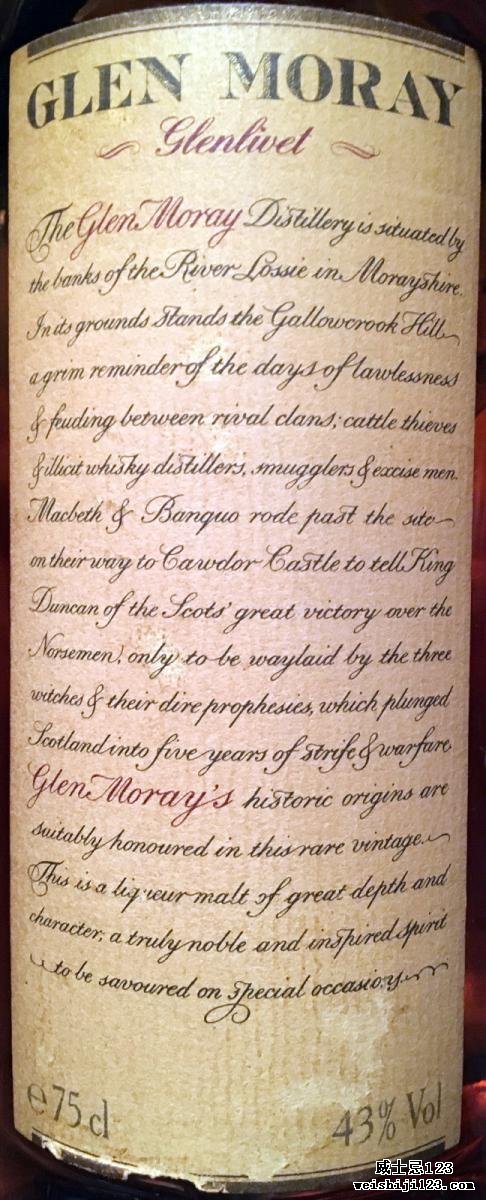 GLEN MORAY
Glenlivet
The Glen Moray Distillery is situated by
the banks of the River Lossie in Morayshire.
In its grounds stands the Gallowcrook Hill,
a grim reminder of the days of lawlessness
& feuding between rival clans; cattle thieves
& illicit whisky distillers, smugglers & excise men.
Macbeth & Banquo rode past the site
on their way to Cawdor Castle to tell King
Duncan of the Scots' great victory over the
Norsemen, only to be waylaid by the three
witches & their dire prophesies, which plunged
Scotland into five years of strife & warfare.
Glen Moray's historic origins are
suitably honoured in this rare vintage.
This is a liqueur malt of great depth and
character; a truly noble and inspired spirit
to be savoured on special occasions.
e 75 cl
43% Vol
威士忌123
weishiji123.com